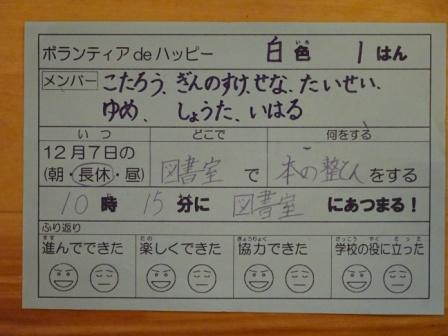 ボランティア de ハッピー 白色 1はん
メンバー こたろう、ぎんのすけ、せな、たいせい、
ゆめ、しょうた、いはる
いつ どこで 何をする
12月7日の
(朝・長休・昼) 図書室 で 本の整とん をする
10 時 15 分に 図書室 にあつまる!
ふり返り
進んでできた 楽しくできた 協力できた 学校の役に立った